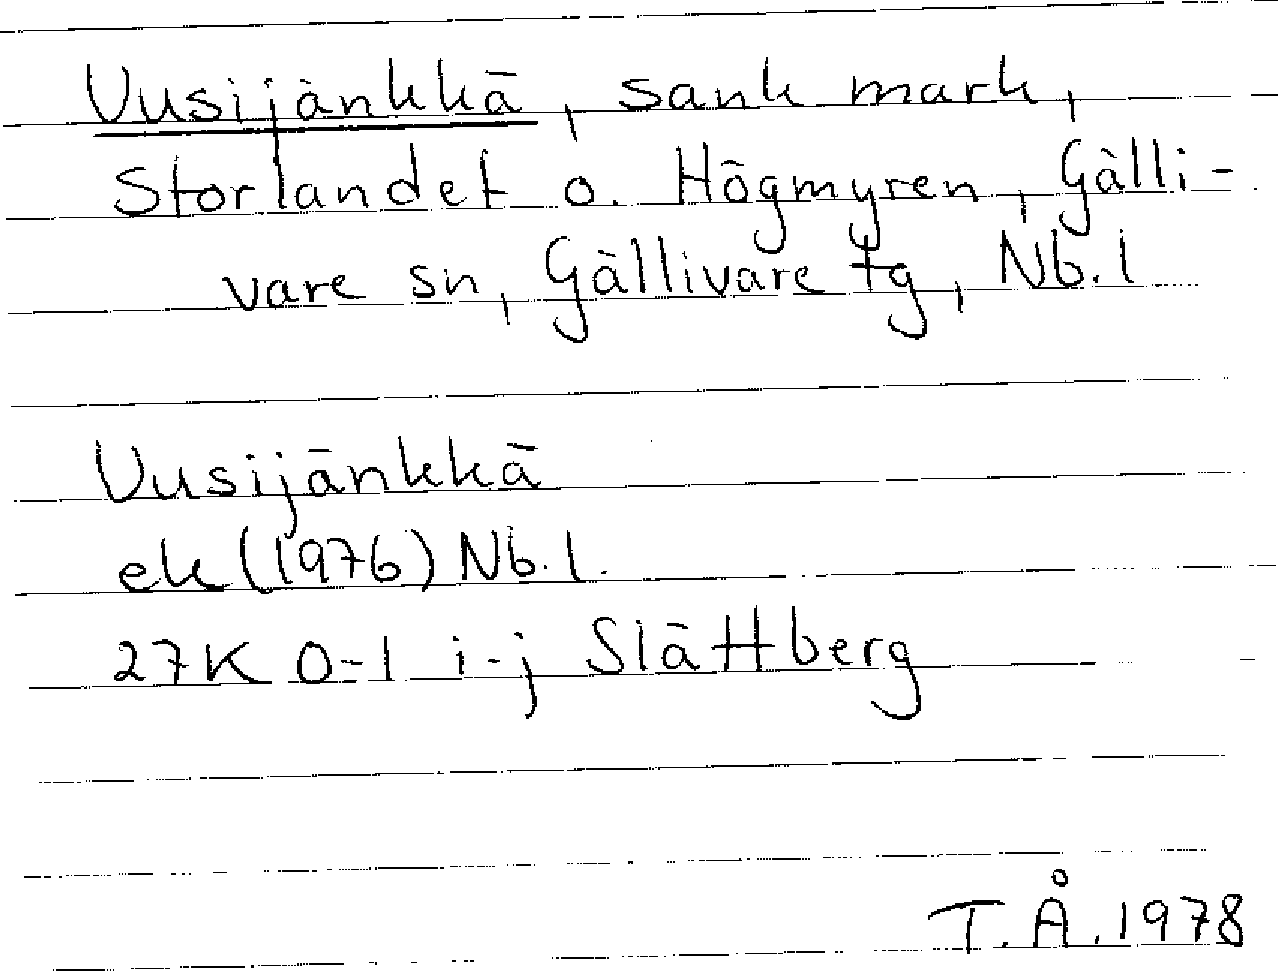 Uusijänkkä, sank mark,
Storlandet o. Högmyren, Gälli-
vare sn, Gällivare tg, Nb. l
Uusijänkkä
ek (1976) Nb. l.
27K 0-1 i-j Slättberg
T.Å. 1978